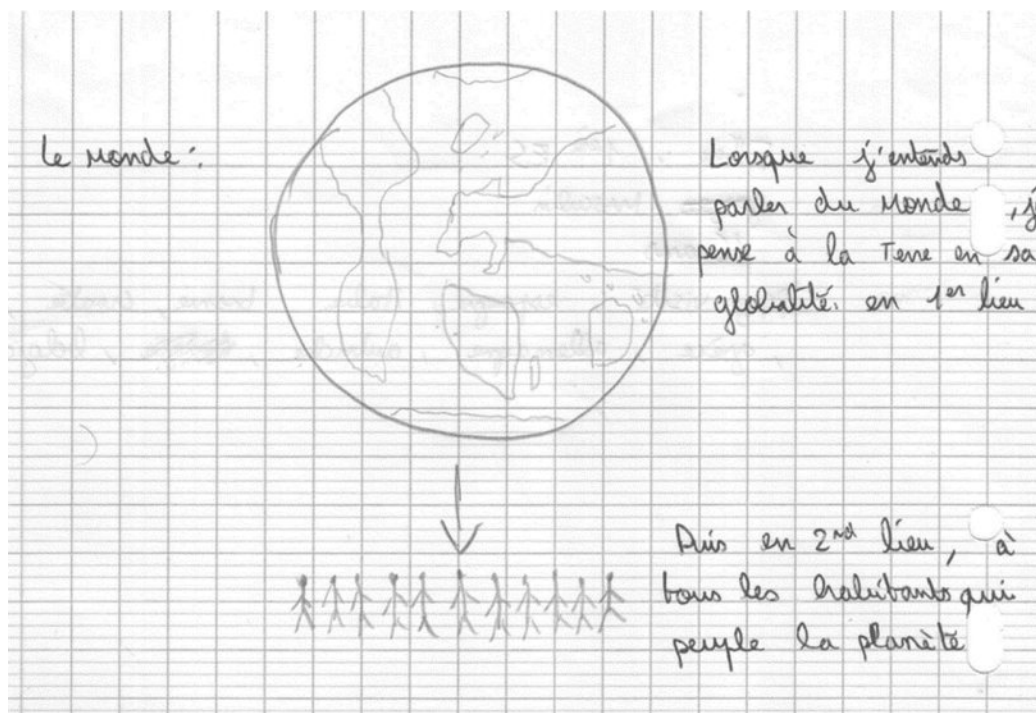 Le monde :
Lorsque j'entends
parler du monde, j
pense à la Terre en sa
globalité. en 1er lieu
Puis en 2nd lieu, à
tous les habitants qui
peuple la planète